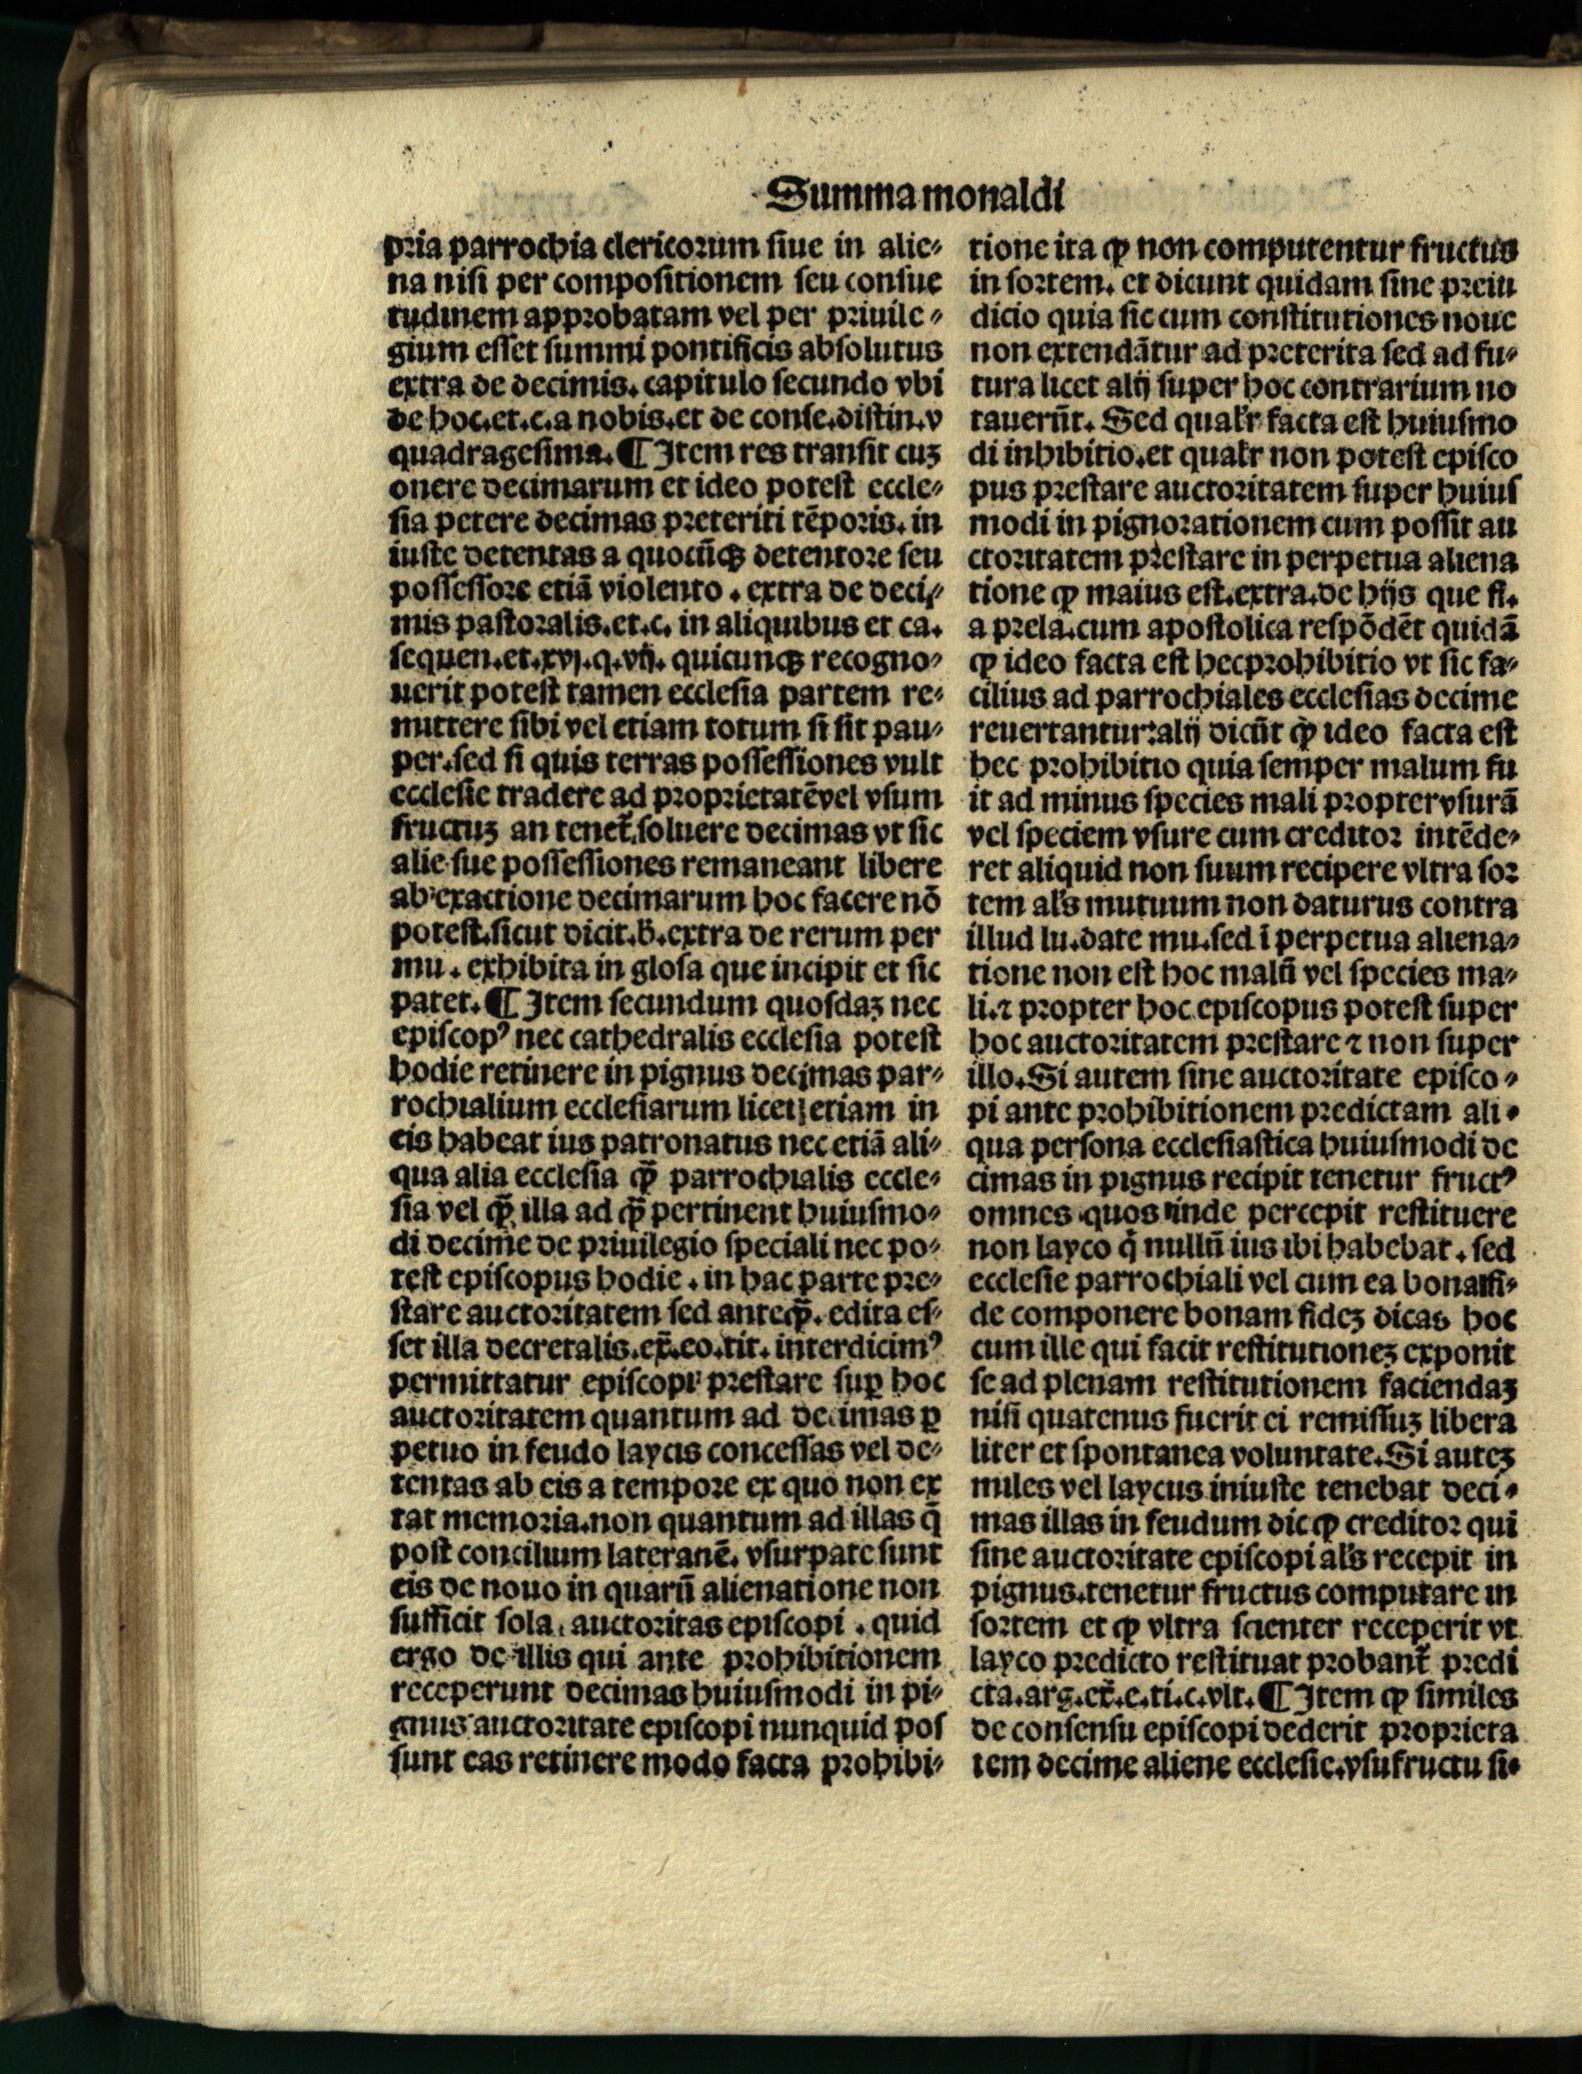 Summa monaldi
pria parrochia clericorum siue in alie⸗
na nisi per compositionem seu consue
tudinem approbatam vel per priuile⸗
gium esset summi pontificis absolutus
extra de decimis. capitulo secundo vbi
de hoc.et.c.a nobis.et de conse.distin.v
quadragesima. ¶ Item res transit cuꝫ
onere decimarum et ideo potest eccle⸗
sia petere decimas preteriti tēporis. in
iuste detentas a quocūqꝫ detentore seu
possessore etiā violento . extra de deci⸗
mis pastoralis.et.c. in aliquibus et ca.
sequen.et.xvj.q.vij. quicunqꝫ recogno⸗
uerit potest tamen ecclesia partem re⸗
mittere sibi vel etiam totum si sit pau⸗
per.sed si quis terras possessiones vult
ecclesie tradere ad proprietatēvel vsum
fructuꝫ an tenet̄.soluere decimas vt sic
alie sue possessiones remaneant libere
ab exactione decimarum hoc facere nō
potest.sicut dicit.b̄.extra de rerum per
mu . exhibita in glosa que incipit et sic
patet. ¶ Item secundum quosdaꝫ nec
episcopꝰ nec cathedralis ecclesia potest
hodie retinere in pignus decimas par⸗
rochialium ecclesiarum licet etiam in
eis habeat ius patronatus nec etiā ali⸗
qua alia ecclesia qꝫ̄ parrochialis eccle⸗
sia vel qꝫ̄ illa ad qꝫ̄ pertinent huiusmo⸗
di decime de priuilegio speciali nec po⸗
test episcopus hodie . in hac parte pre⸗
stare auctoritatem sed anteqꝫ̄. edita es⸗
set illa decretalis.ex̄.eo.tit. interdicimꝰ
permittatur episcopi prestare suꝑ hoc
auctoritatem quantum ad decimas ꝑ
petuo in feudo laycis concessas vel de⸗
tentas ab eis a tempore ex quo non ex
tat memoria.non quantum ad illas q̄
post concilium lateranē. vsurpate sunt
eis de nouo in quarū alienatione non
sufficit sola auctoritas episcopi . quid
ergo de illis qui ante prohibitionem
receperunt decimas huiusmodi in pi⸗
gnus auctoritate episcopi nunquid pos
sunt eas retinere modo facta prohibi⸗
tione ita ꝙ non computentur fructus
in sortem. et dicunt quidam sine preiu
dicio quia sic cum constitutiones noue
non extendātur ad preterita sed ad fu⸗
tura licet alij super hoc contrarium no
tauerūt. Sed qualꝛ facta est huiusmo
di inhibitio.et qualꝛ non potest episco
pus prestare auctoritatem super huius
modi in pignorationem cum possit au
ctoritatem prestare in perpetua aliena
tione ꝙ maius est.extra.de hijs que fi.
a prela.cum apostolica respōdēt quidā
ꝙ ideo facta est hecprohibitio vt sic fa⸗
cilius ad parrochiales ecclesias decime
reuertantur:alij dicūt ꝙ ideo facta est
hec prohibitio quia semper malum fu
it ad minus species mali proptervsurā
vel speciem vsure cum creditor intēde⸗
ret aliquid non suum recipere vltra sor
tem als mutuum non daturus contra
illud lu.date mu.sed ī perpetua aliena⸗
tione non est hoc malū vel species ma⸗
li.⁊ propter hoc episcopus potest super
hoc auctoritatem prestare ⁊ non super
illo.Si autem sine auctoritate episco⸗
pi ante prohibitionem predictam ali⸗
qua persona ecclesiastica huiusmodi de
cimas in pignus recipit tenetur fructꝰ
omnes quos inde percepit restituere
non layco q̄ nullū ius ibi habebat . sed
ecclesie parrochiali vel cum ea bona fi⸗
de componere bonam fideꝫ dicas hoc
cum ille qui facit restitutioneꝫ exponit
se ad plenam restitutionem faciendaꝫ
nisi quatenus fuerit ei remissuꝫ libera
liter et spontanea voluntate.Si auteꝫ
miles vel laycus iniuste tenebat deci⸗
mas illas in feudum dic ꝙ creditor qui
sine auctoritate episcopi als recepit in
pignus.tenetur fructus computare in
sortem et ꝙ vltra scienter receperit vt
layco predicto restituat probant̄ predi
cta.arg.ex̄.e.ti.c.vlt. ¶ Item ꝙ similes
de consensu episcopi dederit proprieta
tem decime aliene ecclesie.vsufructu si⸗